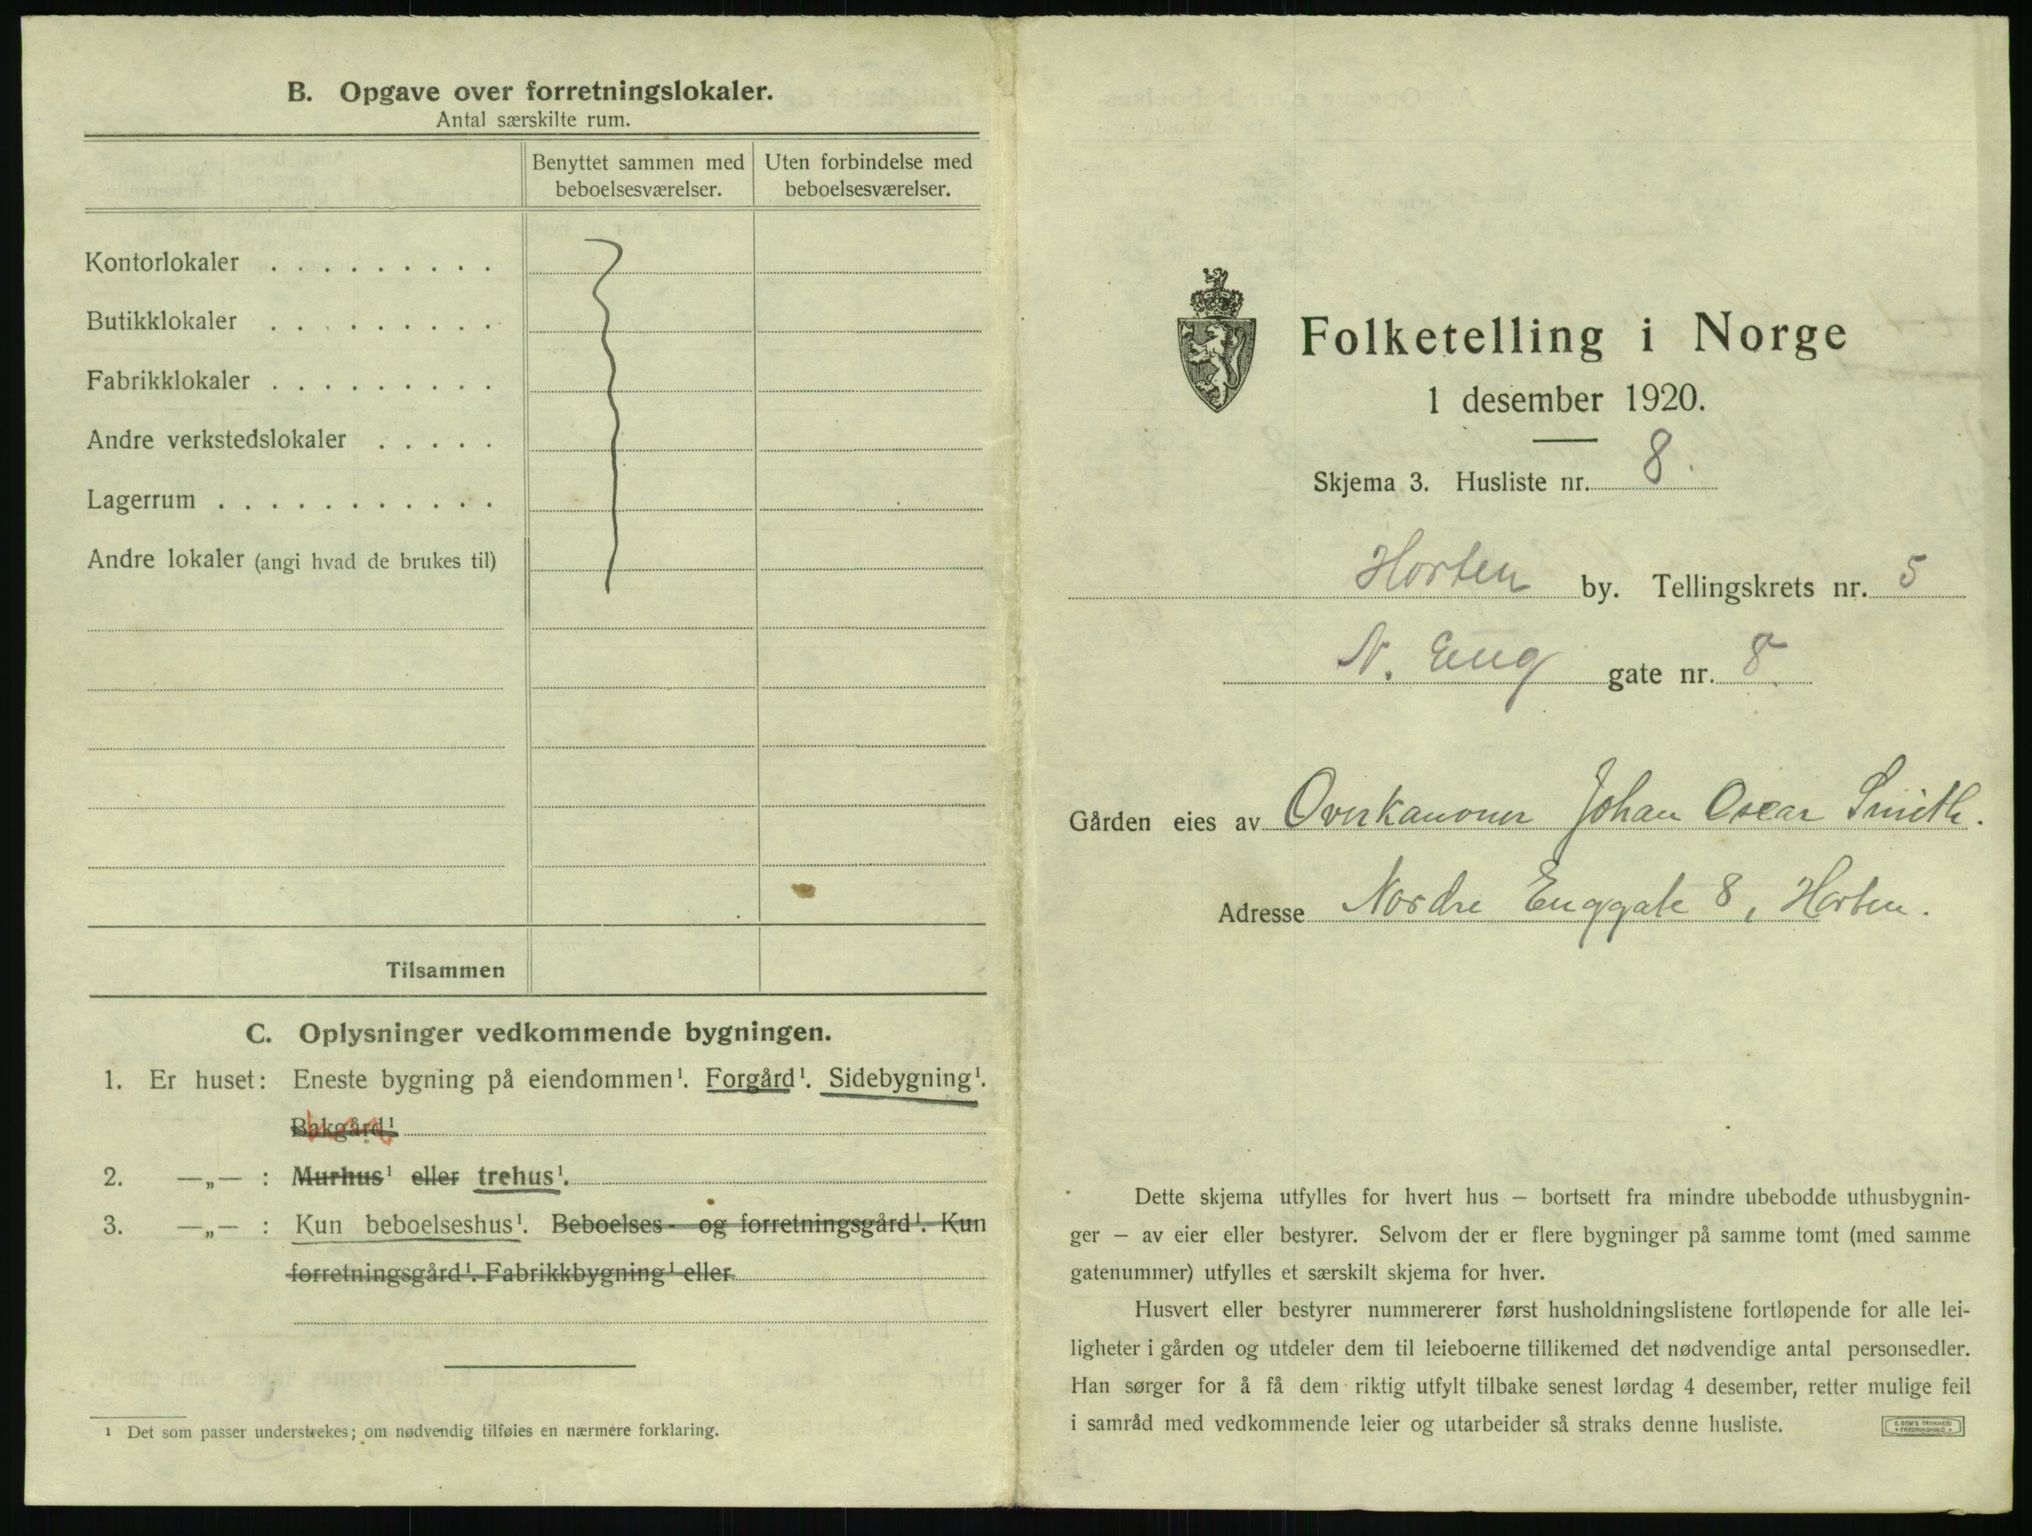 B. Opgave over forretningslokaler.
Antal særskilte rum.
Benyttet sammen med beboelsesværelser.
Uten forbindelse med beboelsesværelser.
Kontorlokaler . . . . . . . . .
Butikklokaler . . . . . . . . .
Fabrikklokaler . . . . . . . . .
Andre verkstedslokaler . . . . .
Lagerrum . . . . . . . . . . .
Andre lokaler (angi hvad de brukes til)
Tilsammen
C. Oplysninger vedkommende bygningen.
1. Er huset: Eneste bygning på eiendommen¹. Forgård¹. Sidebygning¹.
Bakgård¹
2. —„— : Murhus¹ eller trehus¹.
3. —„— : Kun beboelseshus¹. Beboelses- og forretningsgård¹. Kun
forretningsgård¹. Fabrikkbygning¹ eller
¹ Det som passer understrekes; om nødvendig tilføies en nærmere forklaring.
Folketelling i Norge
1 desember 1920.
Skjema 3. Husliste nr. 8.
Horten by. Tellingskrets nr. 5
N. Eng gate nr. 8.
Gården eies av Overkanoner Johan Oscar Smith.
Adresse Nordre Enggate 8, Horten.
Dette skjema utfylles for hvert hus — bortsett fra mindre ubebodde uthusbygnin-
ger — av eier eller bestyrer. Selvom der er flere bygninger på samme tomt (med samme
gatenummer) utfylles et særskilt skjema for hver.
Husvert eller bestyrer nummererer først husholdningslistene fortløpende for alle lei-
ligheter i gården og utdeler dem til leieboerne tillikemed det nødvendige antal personsedler.
Han sørger for å få dem riktig utfylt tilbake senest lørdag 4 desember, retter mulige feil
i samråd med vedkommende leier og utarbeider så straks denne husliste.
E. SEM'S TRYKKERI
• FREDRIKSHALD •